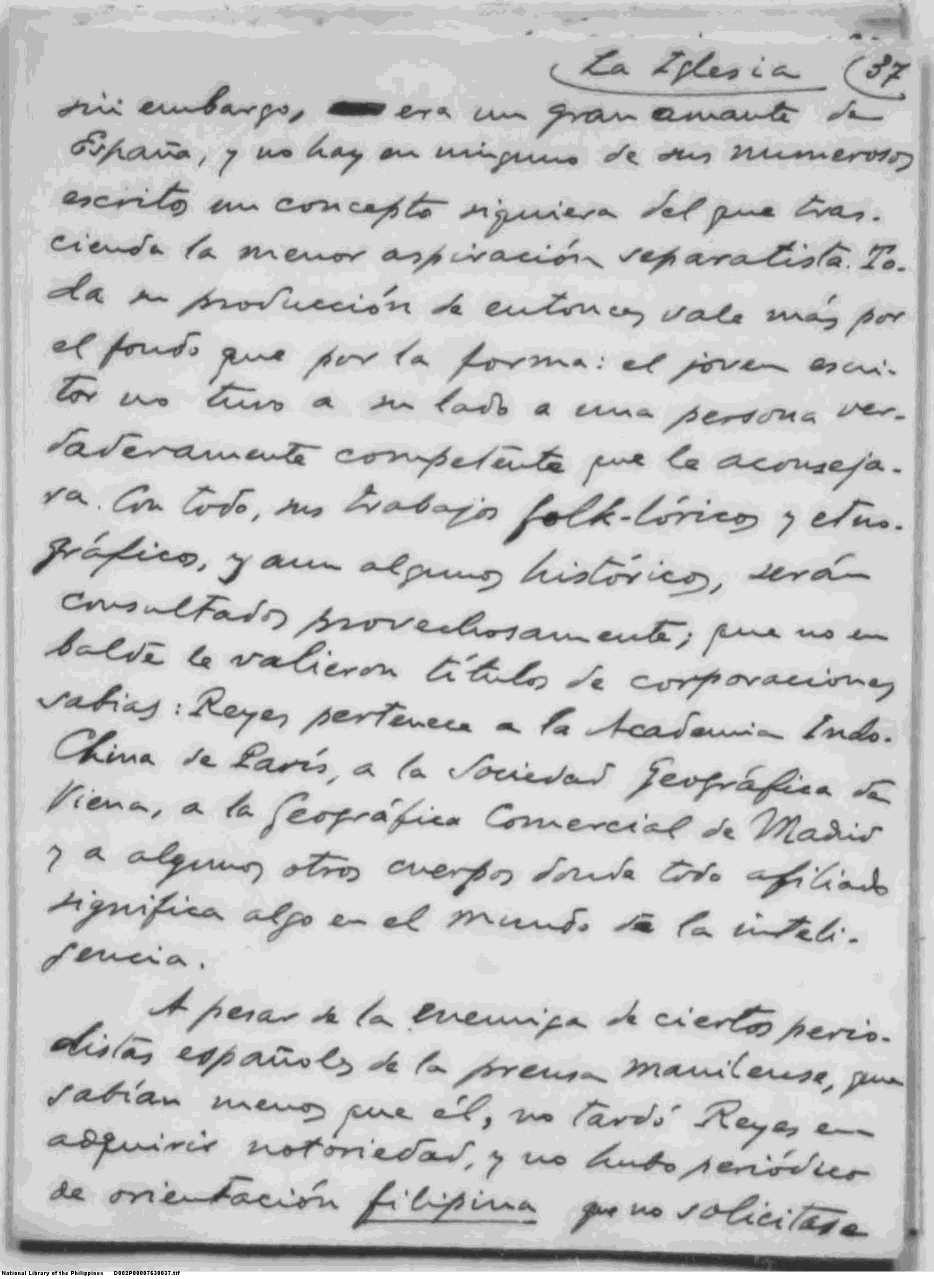 La Iglesia (37
sin embargo, era un gran amante de
España, y no hay en ninguno de sus numerosos
escritos un concepto siquiera del que tras-
cienda la menor aspiración separatista. To-
da su producción de entonces vale más por
el fondo que por la forma: el joven escri-
tor no tuvo a su lado a una persona ver-
daderamente competente que le aconseja-
ra. Con todo, sus trabajos folk-lóricos y etno-
gráficos, y aun algunos históricos, serán
consultados provechosamente; que no en
balde le valieron títulos de corporaciones
sabias: Reyes pertenece a la Academia Indo-
China de París, a la Sociedad Geográfica de
Viena, a la Geográfica Comercial de Madrid
y a algunos otros cuerpos donde todo afiliado
significa algo en el mundo de la inteli-
gencia.
A pesar de la enemiga de ciertos perio-
distas españoles de la prensa manilense, que
sabían menos que él, no tardó Reyes en
adquirir notoriedad, y no hubo periódico
de orientación filipina que no solicitase
National Library of the Philippines D002P00007630037.tif